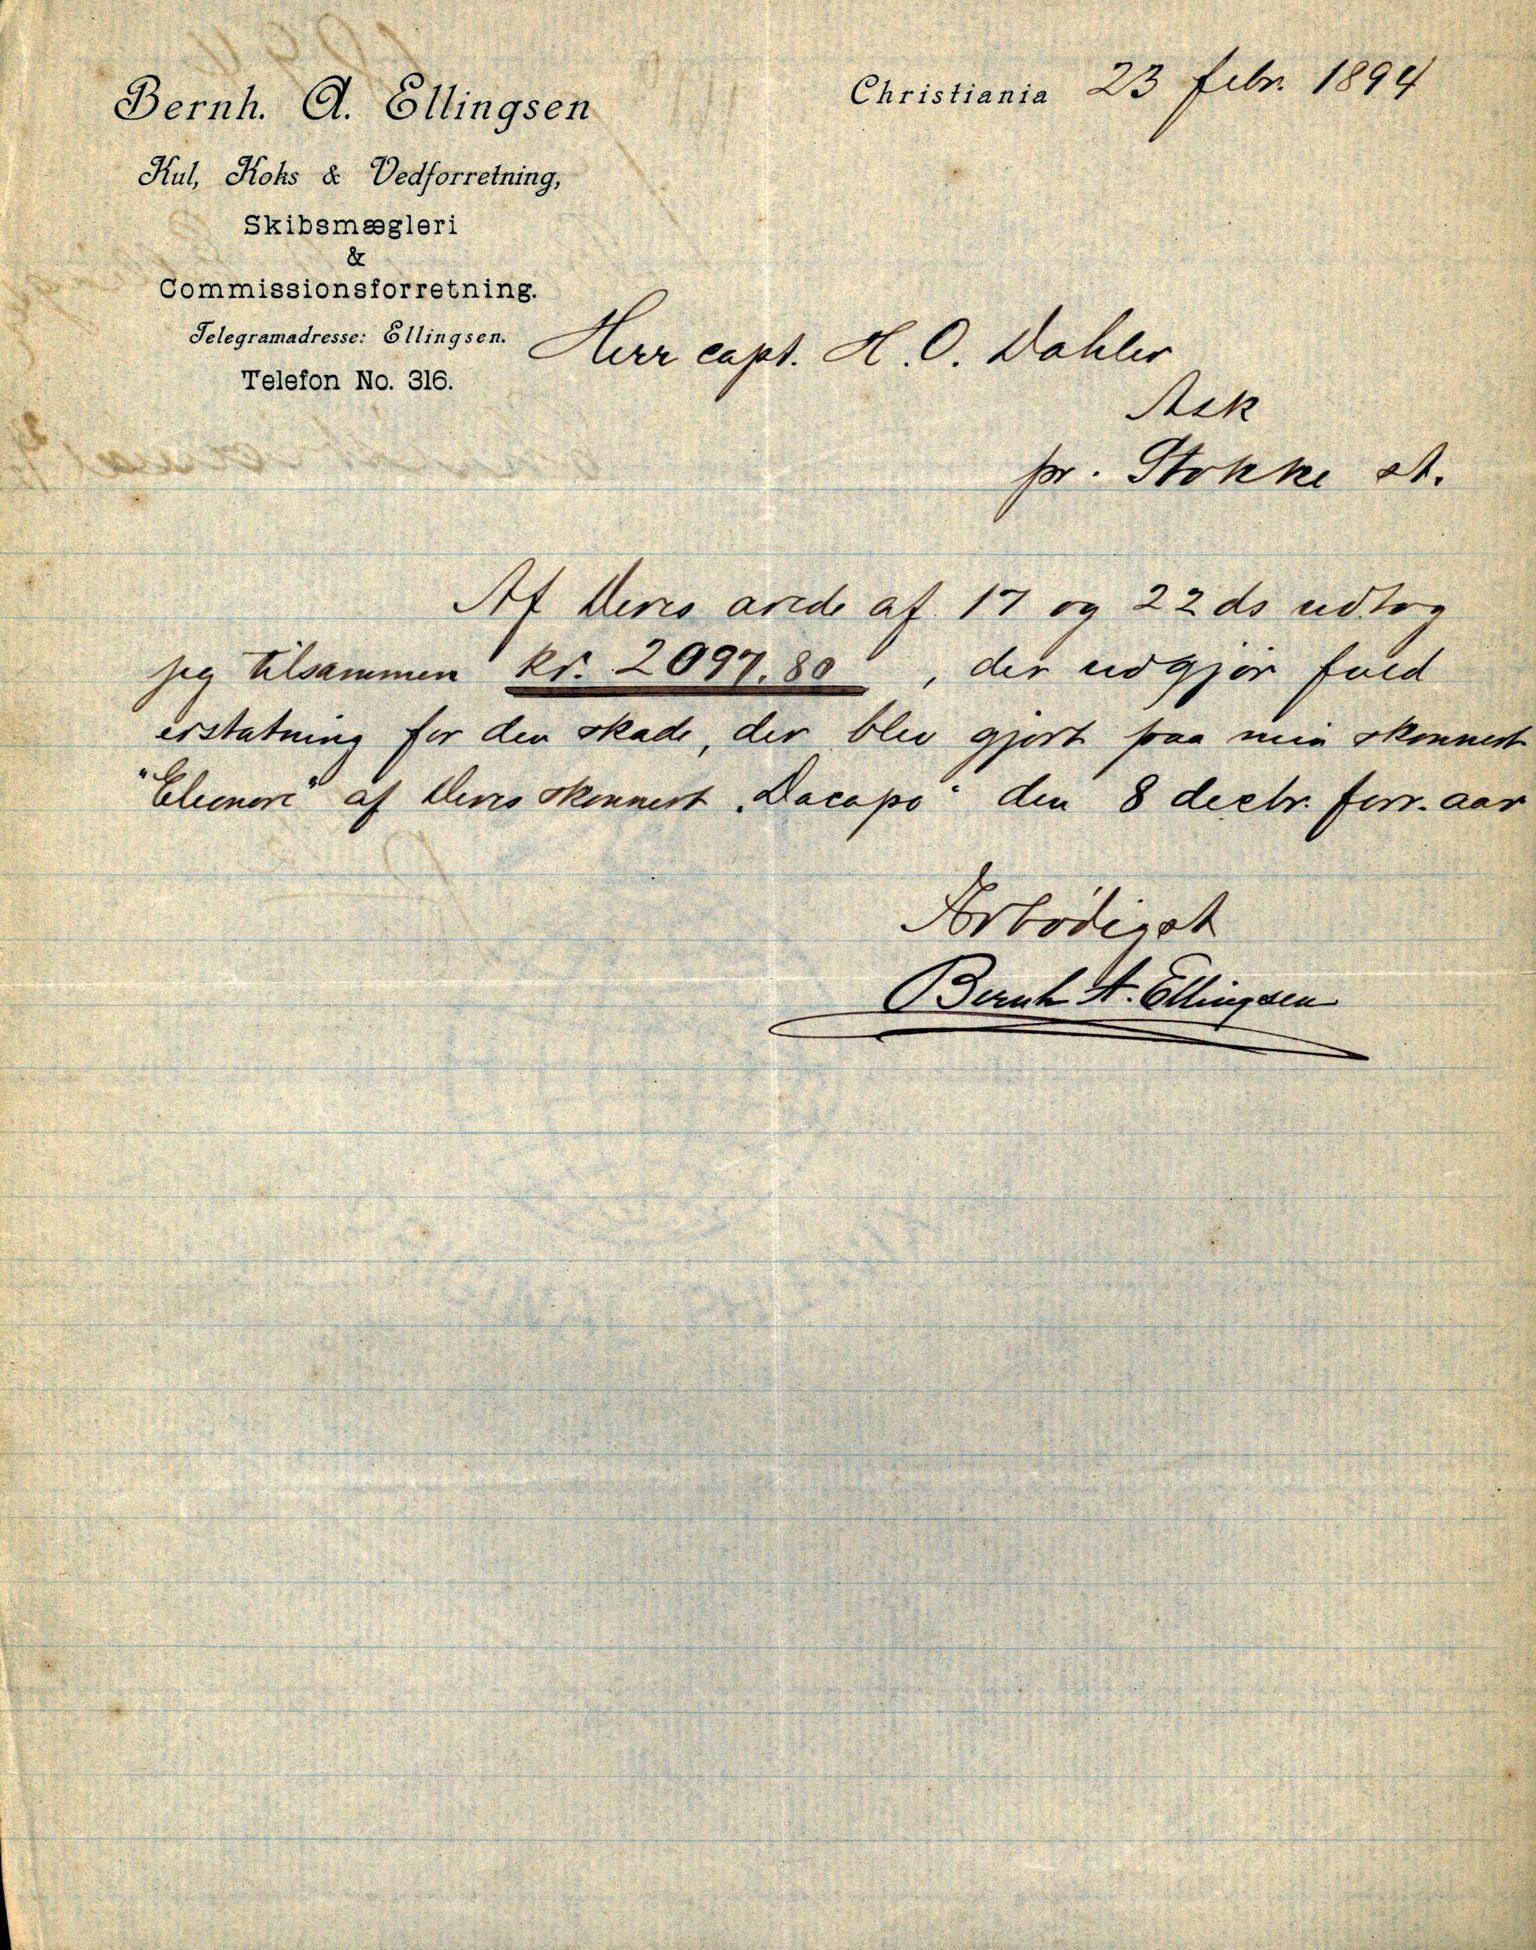 Bernh. A. Ellingsen
Kul, Koks & Vedforretning,
Skibsmægleri
&
Commissionsforretning.
Telegramadresse: Ellingsen.
Telefon No. 316.
Christiania 23 febr. 1894
Herr capt. H. O. Dahler
Ask
pr. Stokke st.
Af Deres ærede af 17 og 22 ds udtog
jeg tilsammen kr. 2097.80, der udgjør fuld
erstatning for den skade, der blev gjort paa min skonnert
"Eleonore" af Deres skonnert "Dacapo" den 8 decbr. forr. aar
Ærbødigst
Bernh A. Ellingsen